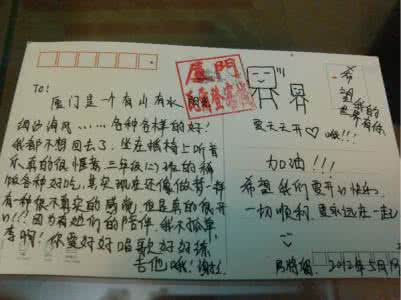 To:
厦门是一个有山有水 阳光
细沙海风……各种各样的好!
我都不想回去了。坐在摇椅上听音
乐真的很惬意 三年级(二)班的
做各种好吃,其实现在还像做梦一样
有一种很不真实的感觉 但是真的很开
心!!!因为有她们的陪伴,我不孤单
李啊!你要好好唱歌好好练
吉他哦!谢谢
厦門
希望我的
世界有你
要天天开♡哦!!!
加油!!!
希望我们要开心快乐
一切顺利 要永远在一起
2012年5月